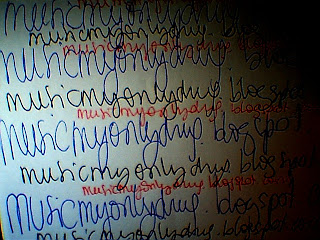 musicmyonlydrug.
musicmyonlydrug. blogspot
musicmyonlydrug.
musicmyonlydrug. blogspot
musicmyonlydrug. blogspot
musicmyonlydrug. blogspot
musicmyonlydrug. blogspot
musicmyonlydrug. blogspot
musicmyonlydrug. blogspot. com
musicmyonlydrug. blogspot
musicmyonlydrug. blogspot